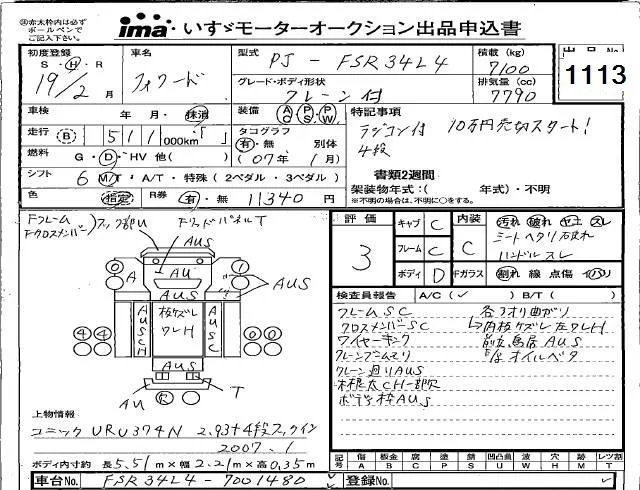 ㊟赤太枠内は必ず
ボールペンで
ご記入下さい。
ima いすゞモーターオークション出品申込書
初度登録 車名 型式 PJ - FSR34L4 積載 (kg) 7100
S・H・R
19/2月 フォワード
グレード・ボディ形状 クレーン付
排気量 (cc) 7790
1113
車検 年 月・抹消
装備 AC PS PW
特記事項
ラジコン付 10万円売切スタート!
4段
走行 B 511 000km・「 」
タコグラフ 有・無 別体
燃料 G・D・HV 他( )
(07年 1月)
書類2週間
シフト 6 M/T・A/T・特殊(2ペダル・3ペダル)
架装物年式:( 年式)・不明
※不明の場合は、不明に○をする。
色 指定 R券 有・無 11340 円
Fフレーム
Fクロスメンバー
フック部U
FリッドパネルT
AUS
AU
A
0 0 1 0
AUS
AUS
板ズレ
クレH
AUSCH
AUSC
4 4 0 0
AUS
AU
R
T
上物情報
ユニック URU374N 2.93t4段フックイン
2007.1
ボディ内寸約 長5.51m×幅2.21m×高0.35m
車台No. FSR34L4-7001480
評価
3
キャブ C 内装 汚れ 破れ ヤニ スレ
フレーム C C シートヘタリ破れ
ハンドルスレ
ボディ D Fガラス 割れ 線 点傷 イハリ
検査員報告 A/C(✓) B/T( )
フレームSC
クロスメンバーSC
ワイヤーキンク
クレーンブームマリ
クレーン廻りAUS
根太CH一部欠
ボデー枠AUS
各アオリ曲がり
↳内板ズレ左クレH
前立鳥居AUS
E/gオイルベタ
記号 傷 板金 腐 塗 錆 凹凸曲 波 穴 跡 レツ割
A B C P S U W H M T
登録No.